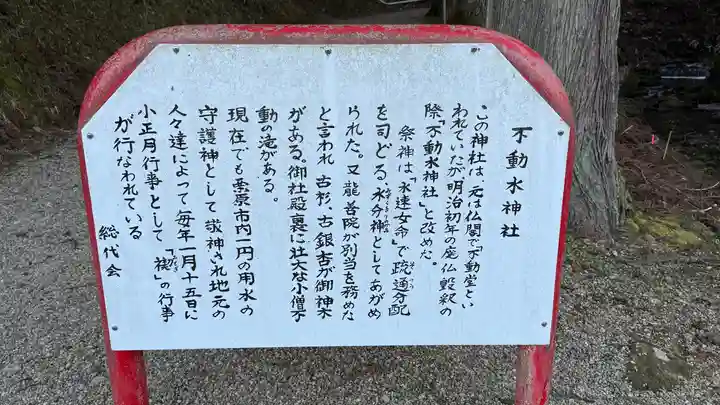 不動水神社
この神社は、元は仏閣で「不動堂」とい
われていたが明治初年の廃仏毀釈の
際「不動水神社」と改めた。
祭神は、「水速女命」で疏通分配
を司どる、水分神としてあがめ
られた。又 龍善院が別当を務めた
と言われ 古杉、古銀杏が御神木
がある。御社殿裏に壮大な小僧不
動の滝がある。
現在でも 市内一円の用水の
守護神として 敬神され地元の
人々達によって毎年一月十五日に
小正月行事として 「禊」の行事
が行なわれている
総代会